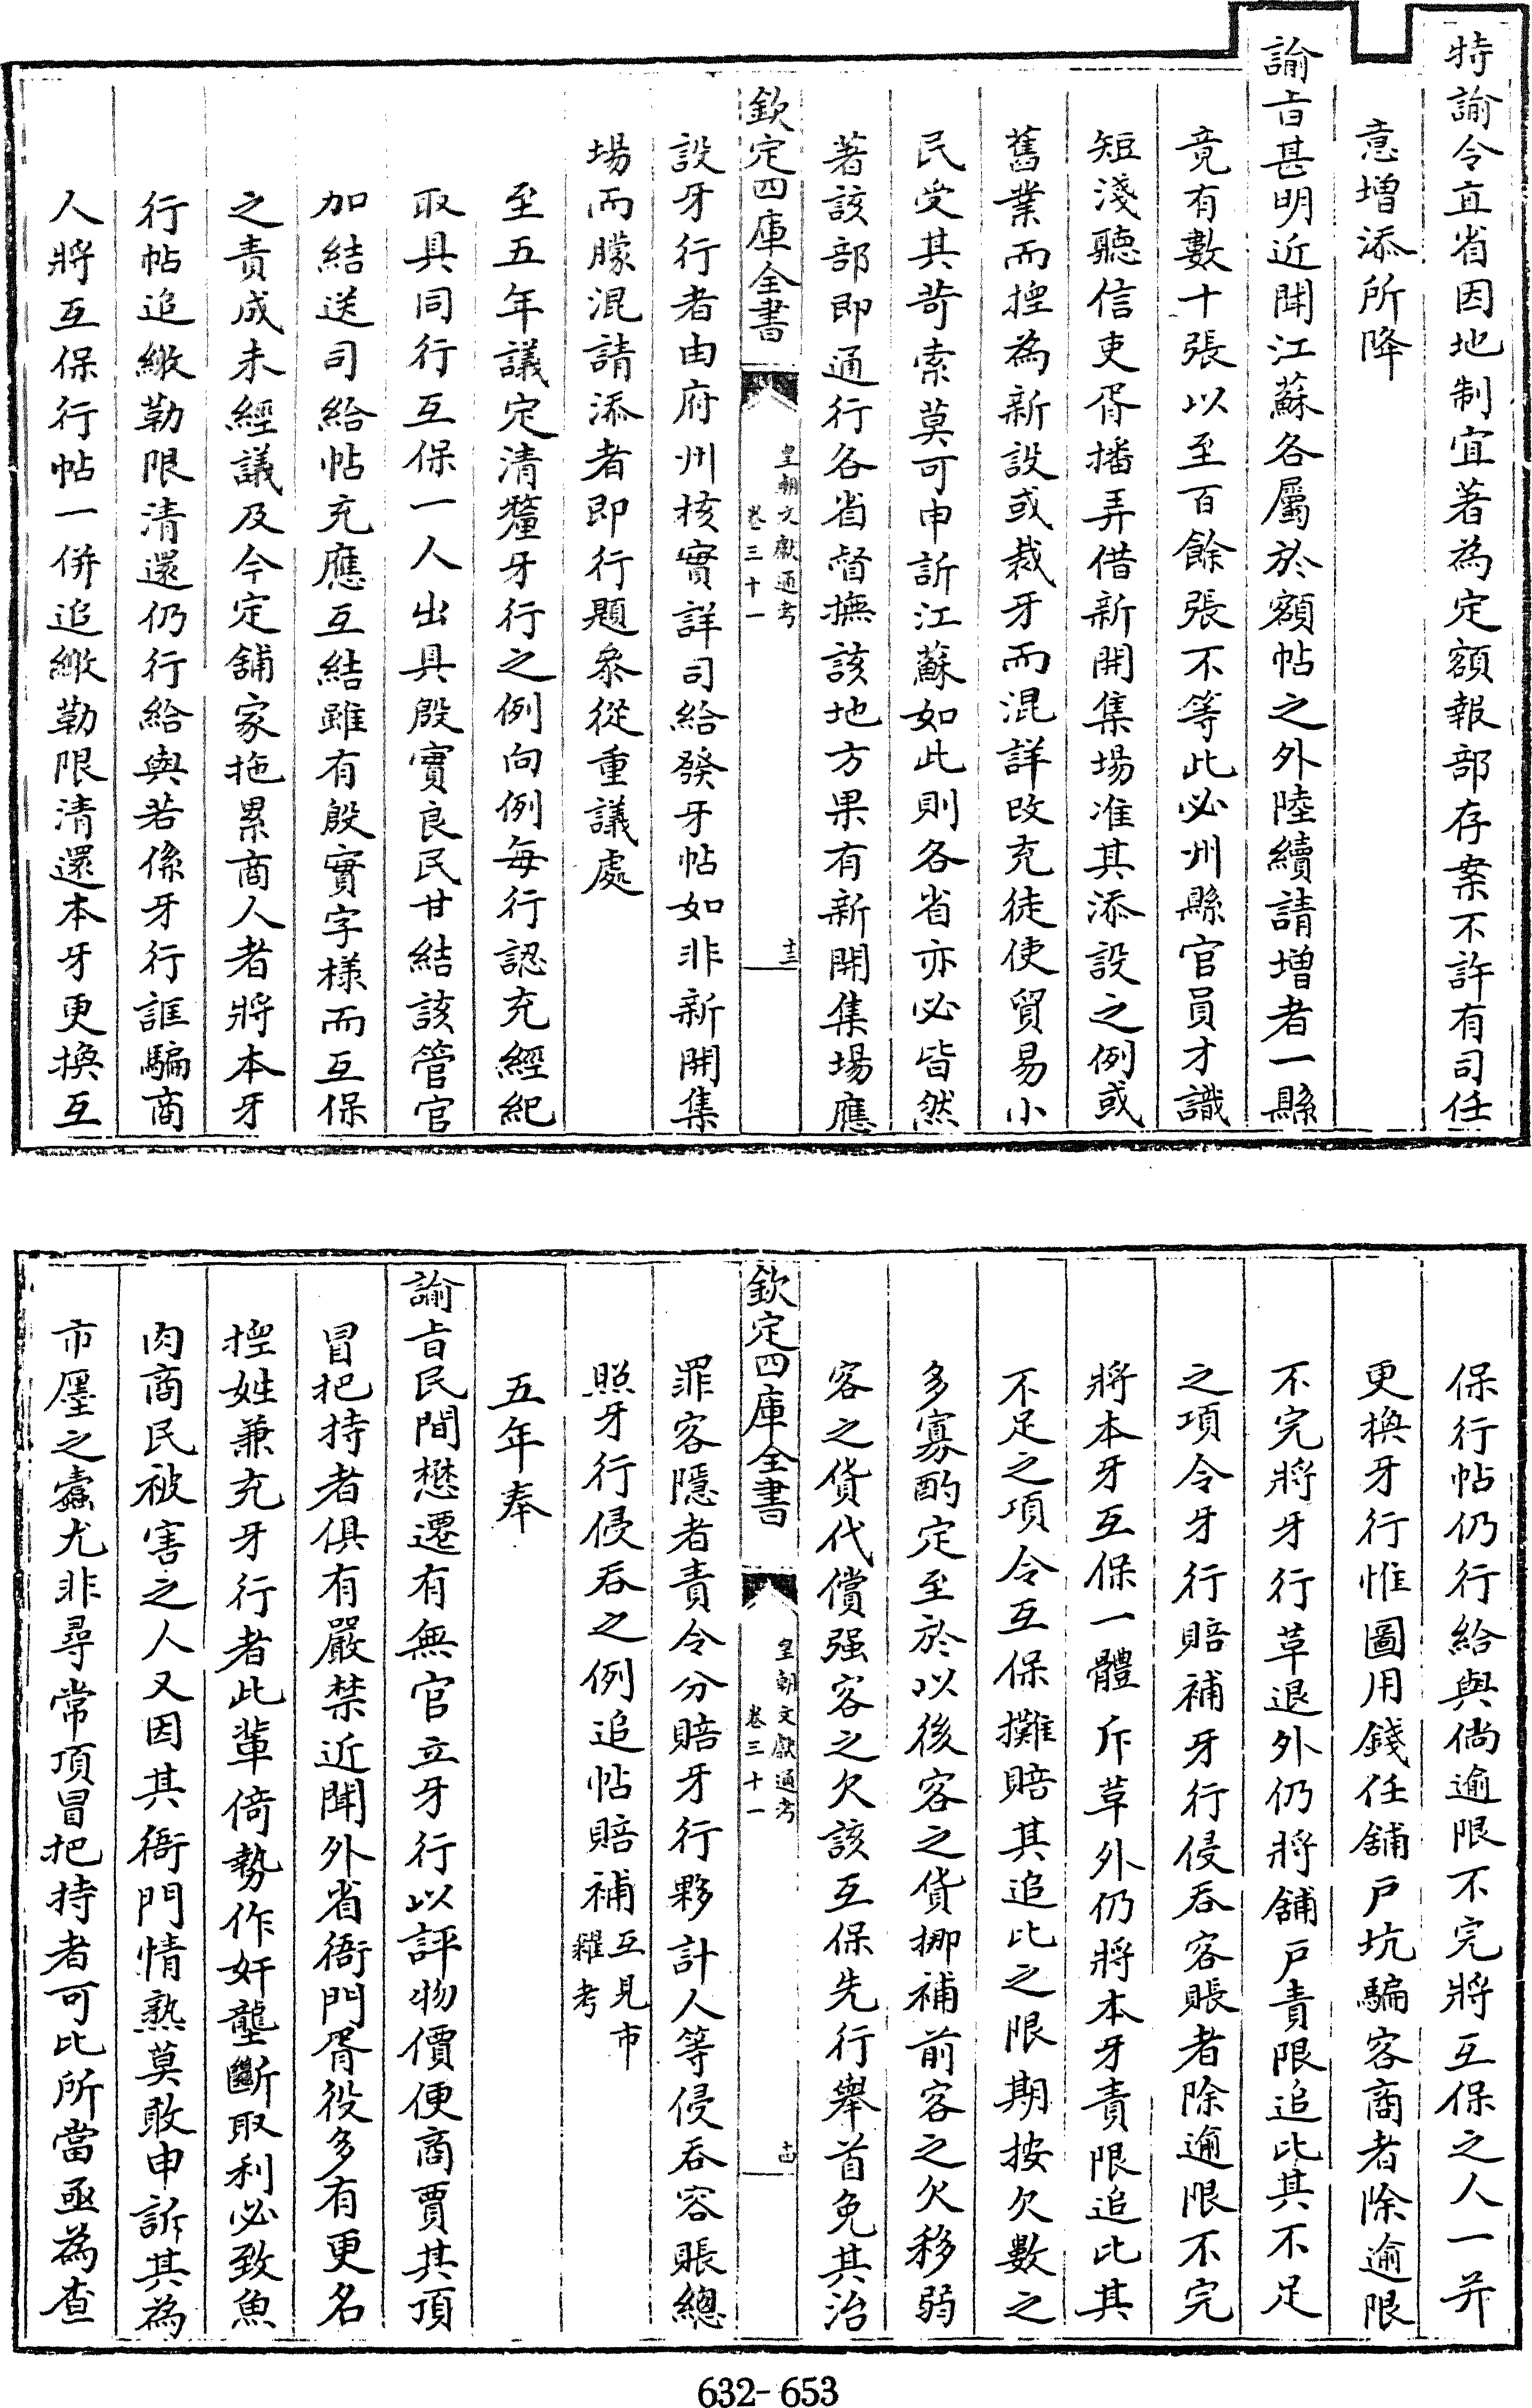 特諭令直省因地制宜著為定額報部存案不許有司任
意增添所降
諭旨甚明近聞江蘇各屬於額帖之外陸續請增者一縣
竟有數十張以至百餘張不等此必州縣官員才識
短淺聽信吏胥播弄借新開集場准其添設之例或
舊業而捏為新設或裁牙而混詳改充徒使貿易小
民受其苛索莫可申訴江蘇如此則各省亦必皆然
著該部即通行各省督撫該地方果有新開集場應
欽定四庫全書
皇朝文獻通考
卷三十一
十三
設牙行者由府州核實詳司給發牙帖如非新開集
場而朦混請添者即行題叅從重議處
至五年議定清釐牙行之例向例每行認充經紀
取具同行互保一人出具殷實良民甘結該管官
加結送司給帖充應互結雖有殷實字樣而互保
之責成未經議及今定舖家拖累商人者將本牙
行帖追繳勒限清還仍行給與若係牙行誆騙商
人將互保行帖一併追繳勒限清還本牙更換互
保行帖仍行給與倘逾限不完將互保之人一并
更換牙行惟圖用錢任舖戸坑騙客商者除逾限
不完將牙行革退外仍將舖戸責限追比其不足
之項令牙行賠補牙行侵吞客賬者除逾限不完
將本牙互保一體斥革外仍將本牙責限追比其
不足之項令互保攤賠其追比之限期按欠數之
多寡酌定至於以後客之貨挪補前客之欠移弱
客之貨代償强客之欠該互保先行舉首免其治
欽定四庫全書
皇朝文獻通考
卷三十一
十四
罪容隱者責令分賠牙行夥計人等侵吞容賬總
照牙行侵吞之例追帖賠補互見市
糴考
五年奉
諭旨民間懋遷有無官立牙行以評物價便商賈其頂
冒把持者俱有嚴禁近聞外省衙門胥役多有更名
捏姓兼充牙行者此輩倚勢作奸壟斷取利必致魚
肉商民被害之人又因其衙門情熟莫敢申訴其為
市廛之蠹尤非尋常頂冒把持者可比所當亟為查
632-653